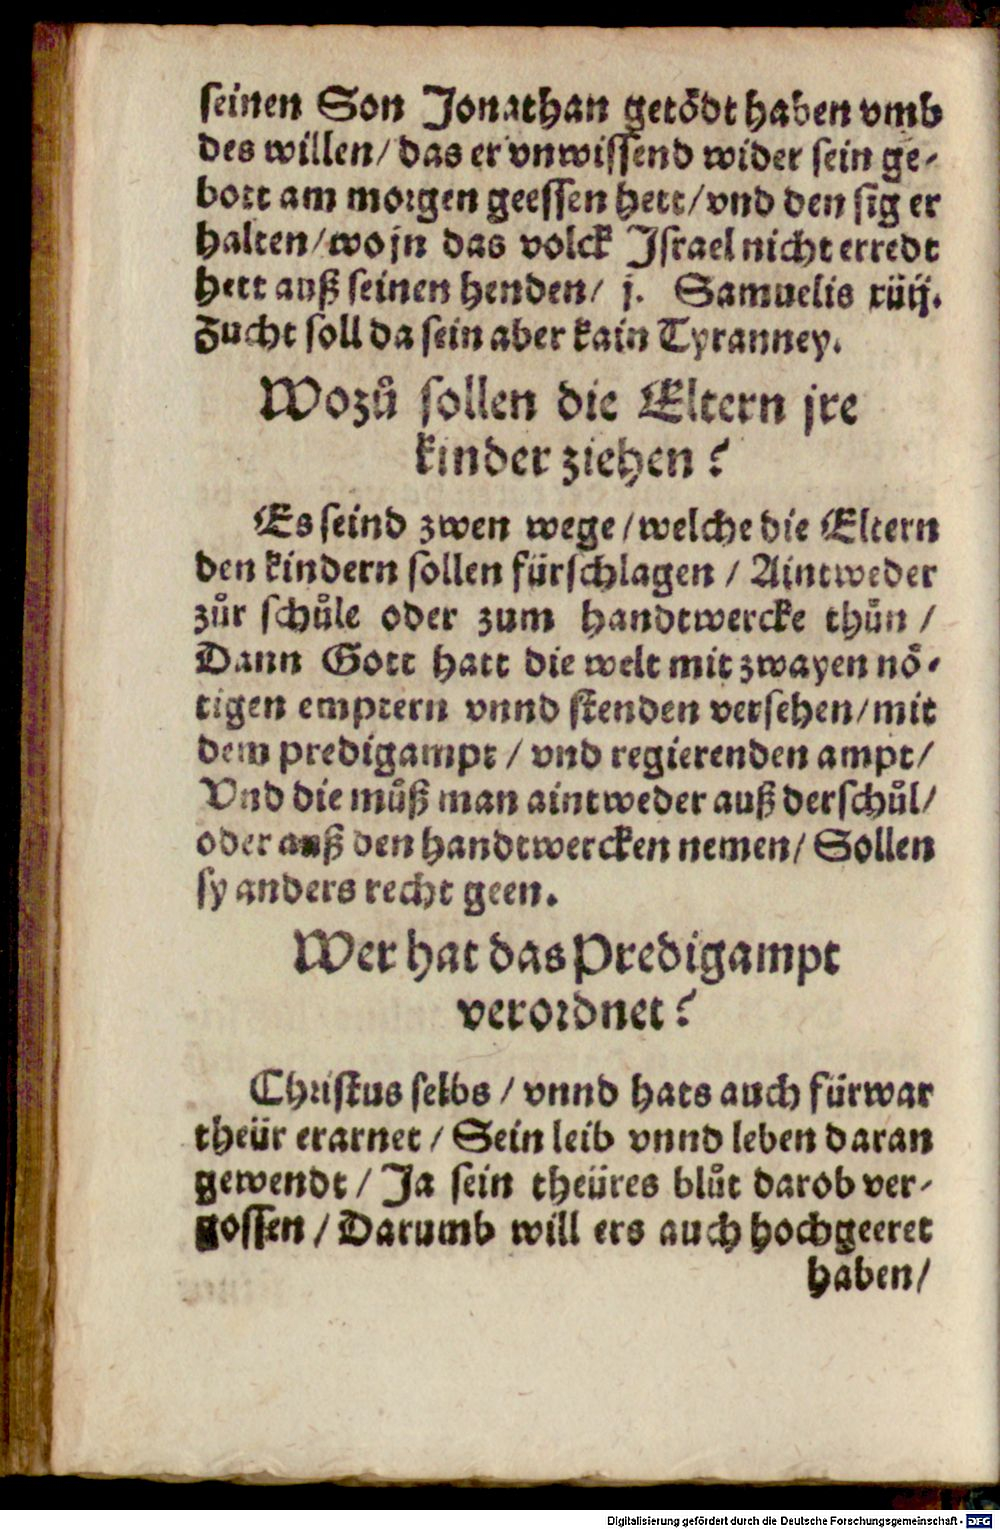 seinen Son Jonathan getödt haben vmb
des willen/ das er vnwissend wider sein ge-
bott am morgen geessen hett/ vnd den sig er
halten/ wo jn das volck Israel nicht erredt
hett auß seinen henden/ j. Samuelis xiiij.
Zucht soll da sein aber kain Tyranney.
Wozů sollen die Eltern jre
kinder ziehen?
Es seind zwen wege/ welche die Eltern
den kindern sollen fürschlagen / Aintweder
zůr schůle oder zum handtwercke thůn /
Dann Gott hatt die welt mit zwayen nö-
tigen emptern vnnd stenden versehen/ mit
dem predigampt / vnd regierenden ampt/
Vnd die můß man aintweder auß der schůl/
oder auß den handtwercken nemen/ Sollen
sy anders recht geen.
Wer hat das Predigampt
verordnet?
Christus selbs / vnnd hats auch fürwar
theür erarnet / Sein leib vnnd leben daran
gewendt / Ja sein theüres blůt darob ver-
gossen / Darumb will ers auch hochgeeret
haben/
Digitalisierung gefördert durch die Deutsche Forschungsgemeinschaft - DFG